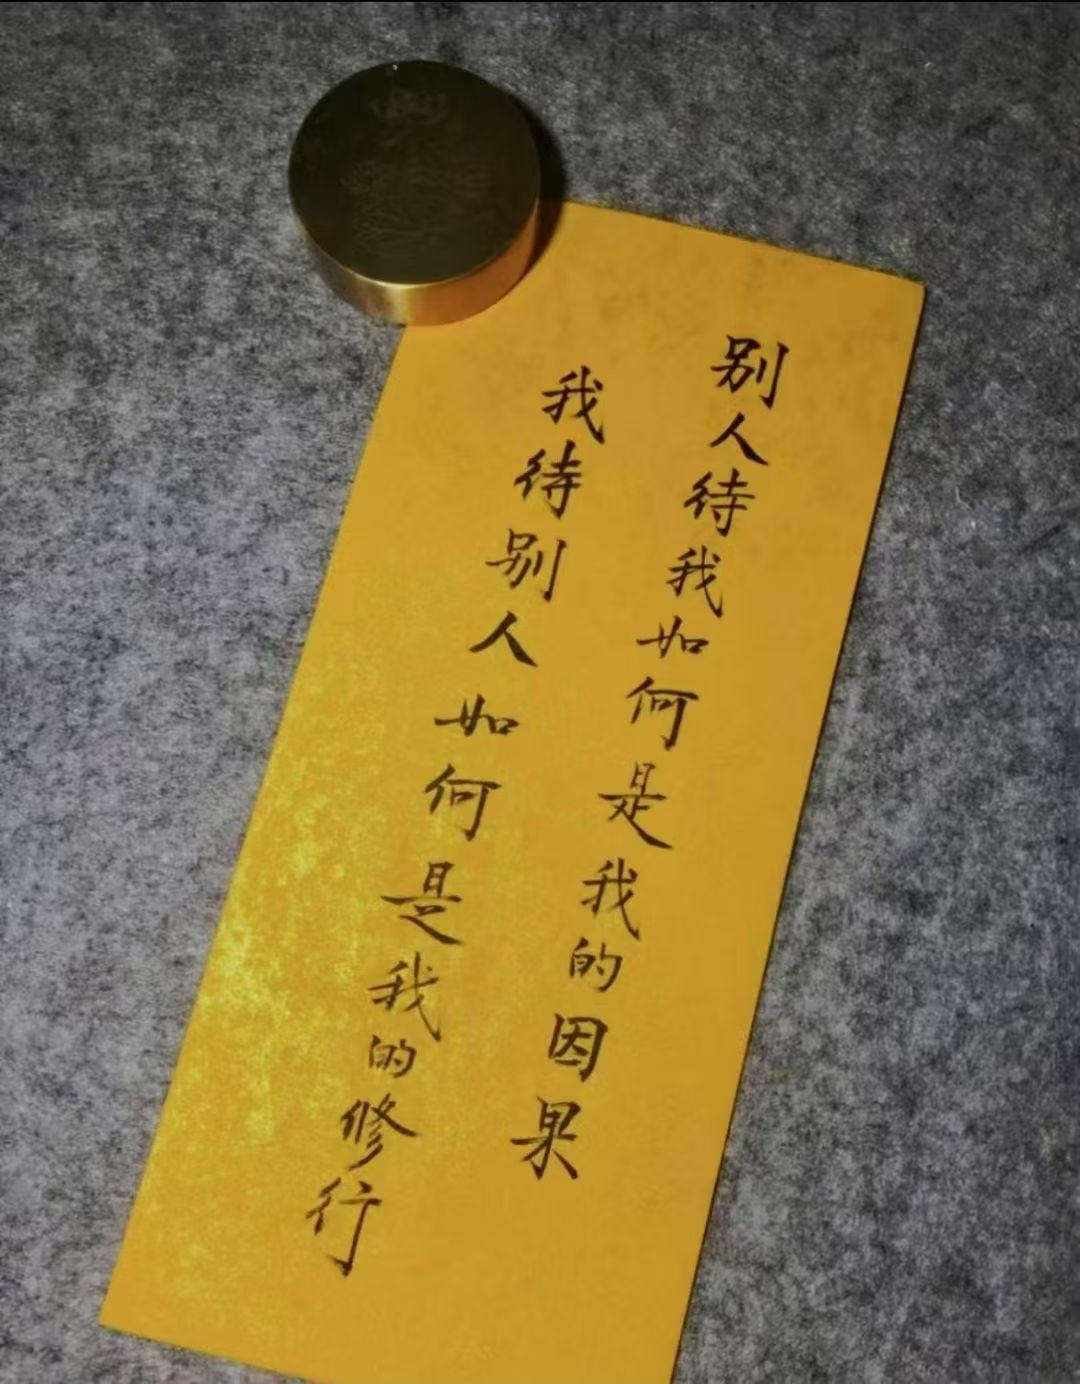 别人待我如何是我的因果
我待别人如何是我的修行